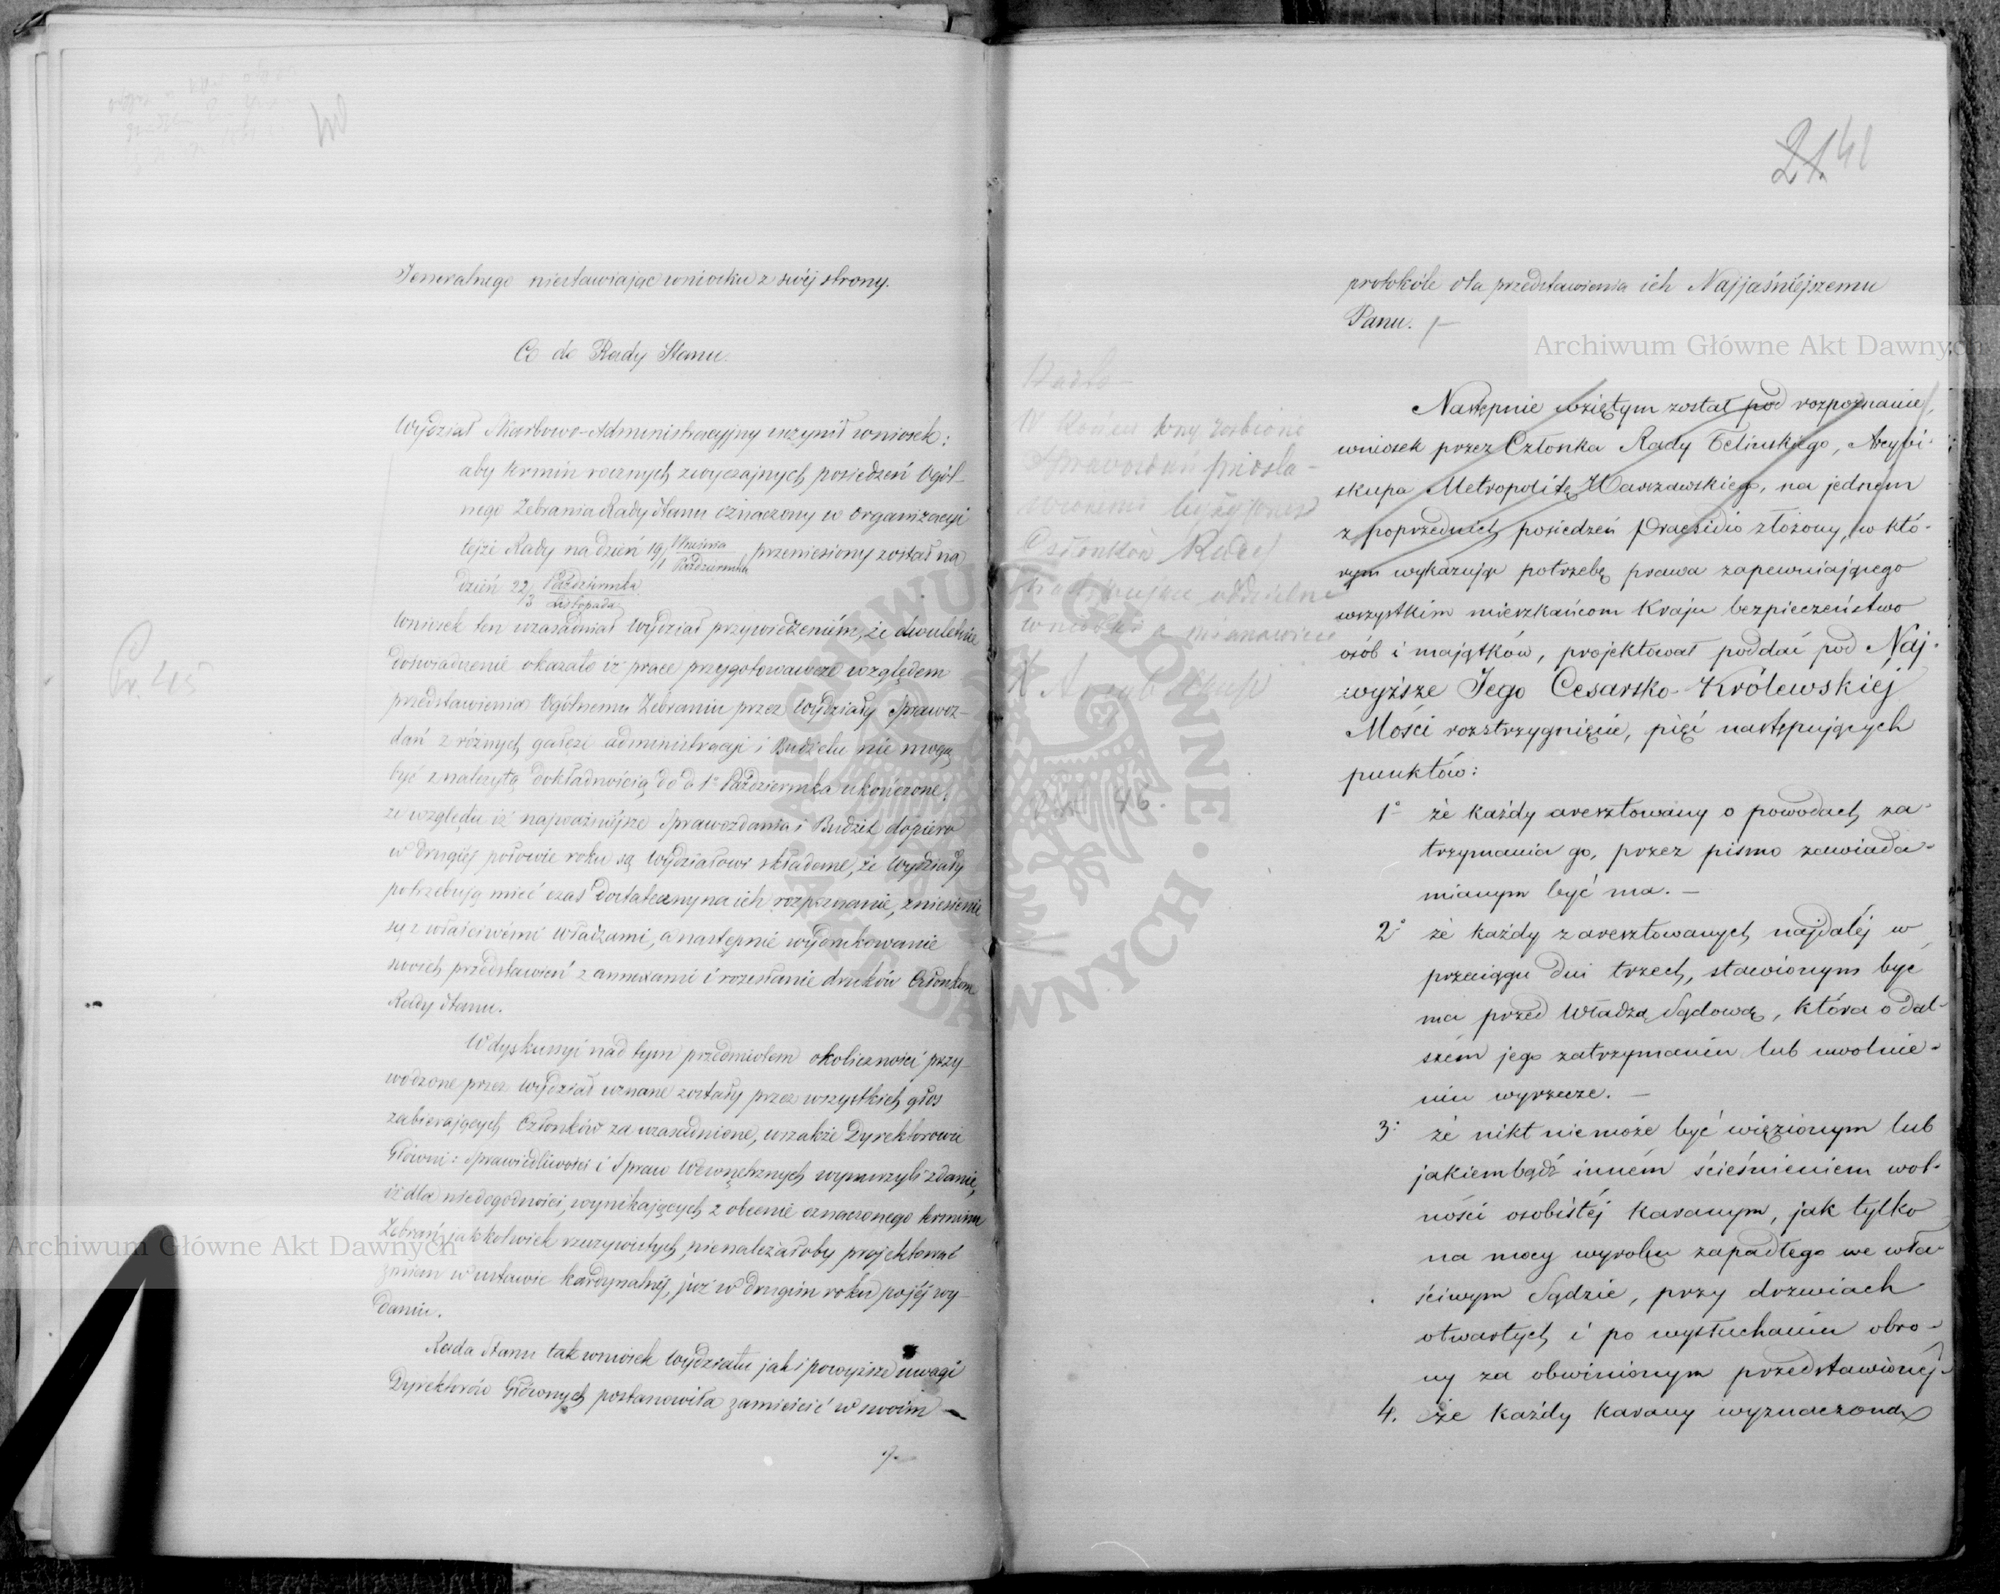 Jeneralnego niestawiając wniosku z swéj strony.
Co do Rady Stanu.
Wydział Skarbowo-Administracyjny uczynił wniosek:
aby termin rocznych zwyczajnych posiedzeń Ogól-
nego Zebrania Rady Stanu oznaczony w organizacyi
tejże Rady na dzień 19/1 Września/Października przeniesiony został na
dzień 22/3 Października/Listopada
Wniosek ten uzasadniał Wydział przywiedzeniém, że dwuletnie
doświadczenie okazało iż prace przygotowawcze względem
przedstawienia Ogólnemu Zebraniu przez Wydziały Sprawoz-
dań z różnych gałęzi administracyi i Budżetu nie mogą
być z należytą dokładnością do d. 1o Października ukończone,
ze względu iż najważniejsze Sprawozdania i Budżet dopiero
w drugiéj połowie roku są Wydziałowi składane, że Wydziały
potrzebują mieć czas dostateczny na ich rozpoznanie, zniesienie
się z właściwémi władzami, a następnie wydrukowanie
swoich przedstawień z annexami i rozesłanie druków Członkom
Rady Stanu.
W dyskussyi nad tym przedmiotem okoliczności przy-
wodzone przez Wydział uznane zostały przez wszystkich głos
zabierających Członków za uzasadnione, wszakże Dyrektorowie
Główni: Sprawiedliwości i Spraw Wewnętrznych wynurzyli zdanie,
iż dla niedogodności, wynikających z obecnie oznaczonego terminu
Zebrań, jakkolwiek rzeczywistych, nienależałoby projektować
zmian w ustawie kardynalnéj, już w drugim roku po jéj wy-
daniu.
Rada Stanu tak wniosek Wydziału jak i powyższe uwagi
Dyrektorów Głównych postanowiła zamieścić w swoim
Pr. 45
21. 41
protokóle dla przedstawienia ich Najjaśniéjszemu
Panu.
W końcu
Sprawozdań
Członków Rady
oddzielne
wnioski a mianowicie
X Arcybiskup
46.
Następnie wziętym został pod rozpoznanie,
wniosek przez Członka Rady Felińskiego, Arcybi-
skupa Metropolitę Warszawskiego, na jednem
z poprzednich posiedzeń Praesidio złożony, w któ-
rym wykazując potrzebę prawa zapewniającego
wszystkim mieszkańcom Kraju bezpieczeństwo
osób i majątków, projektował poddać pod Naj-
wyższe Jego Cesarsko-Królewskiej
Mości rozstrzygnięcie, pięć następujących
punktów:
1o że każdy aresztowany o powodach za-
trzymania go, przez pismo zawiada-
mianym być ma. —
2o że każdy z aresztowanych najdaléj w
przeciągu dni trzech, stawionym być
ma przed Władzą Sądową, która o dal-
szém jego zatrzymaniu lub uwolnie-
niu wyrzecze. —
3o że nikt nie może być więzionym lub
jakiembądź inném ścieśnieniem wol-
ności osobistéj karanym, jak tylko
na mocy wyroku zapadłego we wła-
ściwym Sądzie, przy drzwiach
otwartych i po wysłuchaniu obro-
ny za obwinionym przedstawionéj.
4. że każdy karany wyznaczoną
Archiwum Główne Akt Dawnych
Archiwum Główne Akt Dawnych
ARCHIWUM GŁÓWNE · AKT DAWNYCH ·